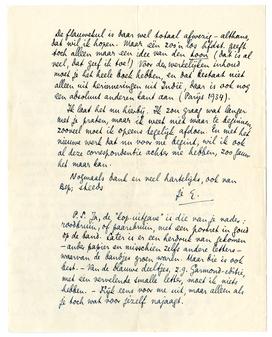 De flauwekul is daar wel totaal afwezig – althans,
dat wil ik hopen. Maar één zoo'n los hfdst. geeft
toch alleen maar een toon (dat is al
veel, dat geef ik toe!) Voor de werkelijken inhoud
moet je het heele boek hebben, en dat bestaat niet
alleen uit herinneringen uit Indië, daar is ook nog
een absoluut andere kant aan (Parijs 1934).
Ik laat het nu hierbij. Ik zou graag wat langer
met je praten, maar ik weet niet waar te beginnen,
zooveel moet ik opeens tegelijk afdoen. En met het
nieuwe werk dat nu voor me begint, wil ik ook
al deze correspondentie achter me hebben, zoo gauw
het maar kan.
Nogmaals dank en veel hartelijks, ook van
Bep; steeds
je E.
P.S. Ja, de "kop-uitgave" is die van je vader;
roodbruin, of paarsbruin, met een portret in goud
op de band. Later is er een herdruk van gekomen
– ander papier en misschien zelfs andere letters –
waarvan de bandjes groen waren. Maar die is ook
best. – Van de blauwe deeltjes, z.g. Garmond-editie,
met een vervelende smalle letter, moet ik niets
hebben. – Kijk eens voor me uit, maar alleen als
je toch wat voor jezelf najaagt.